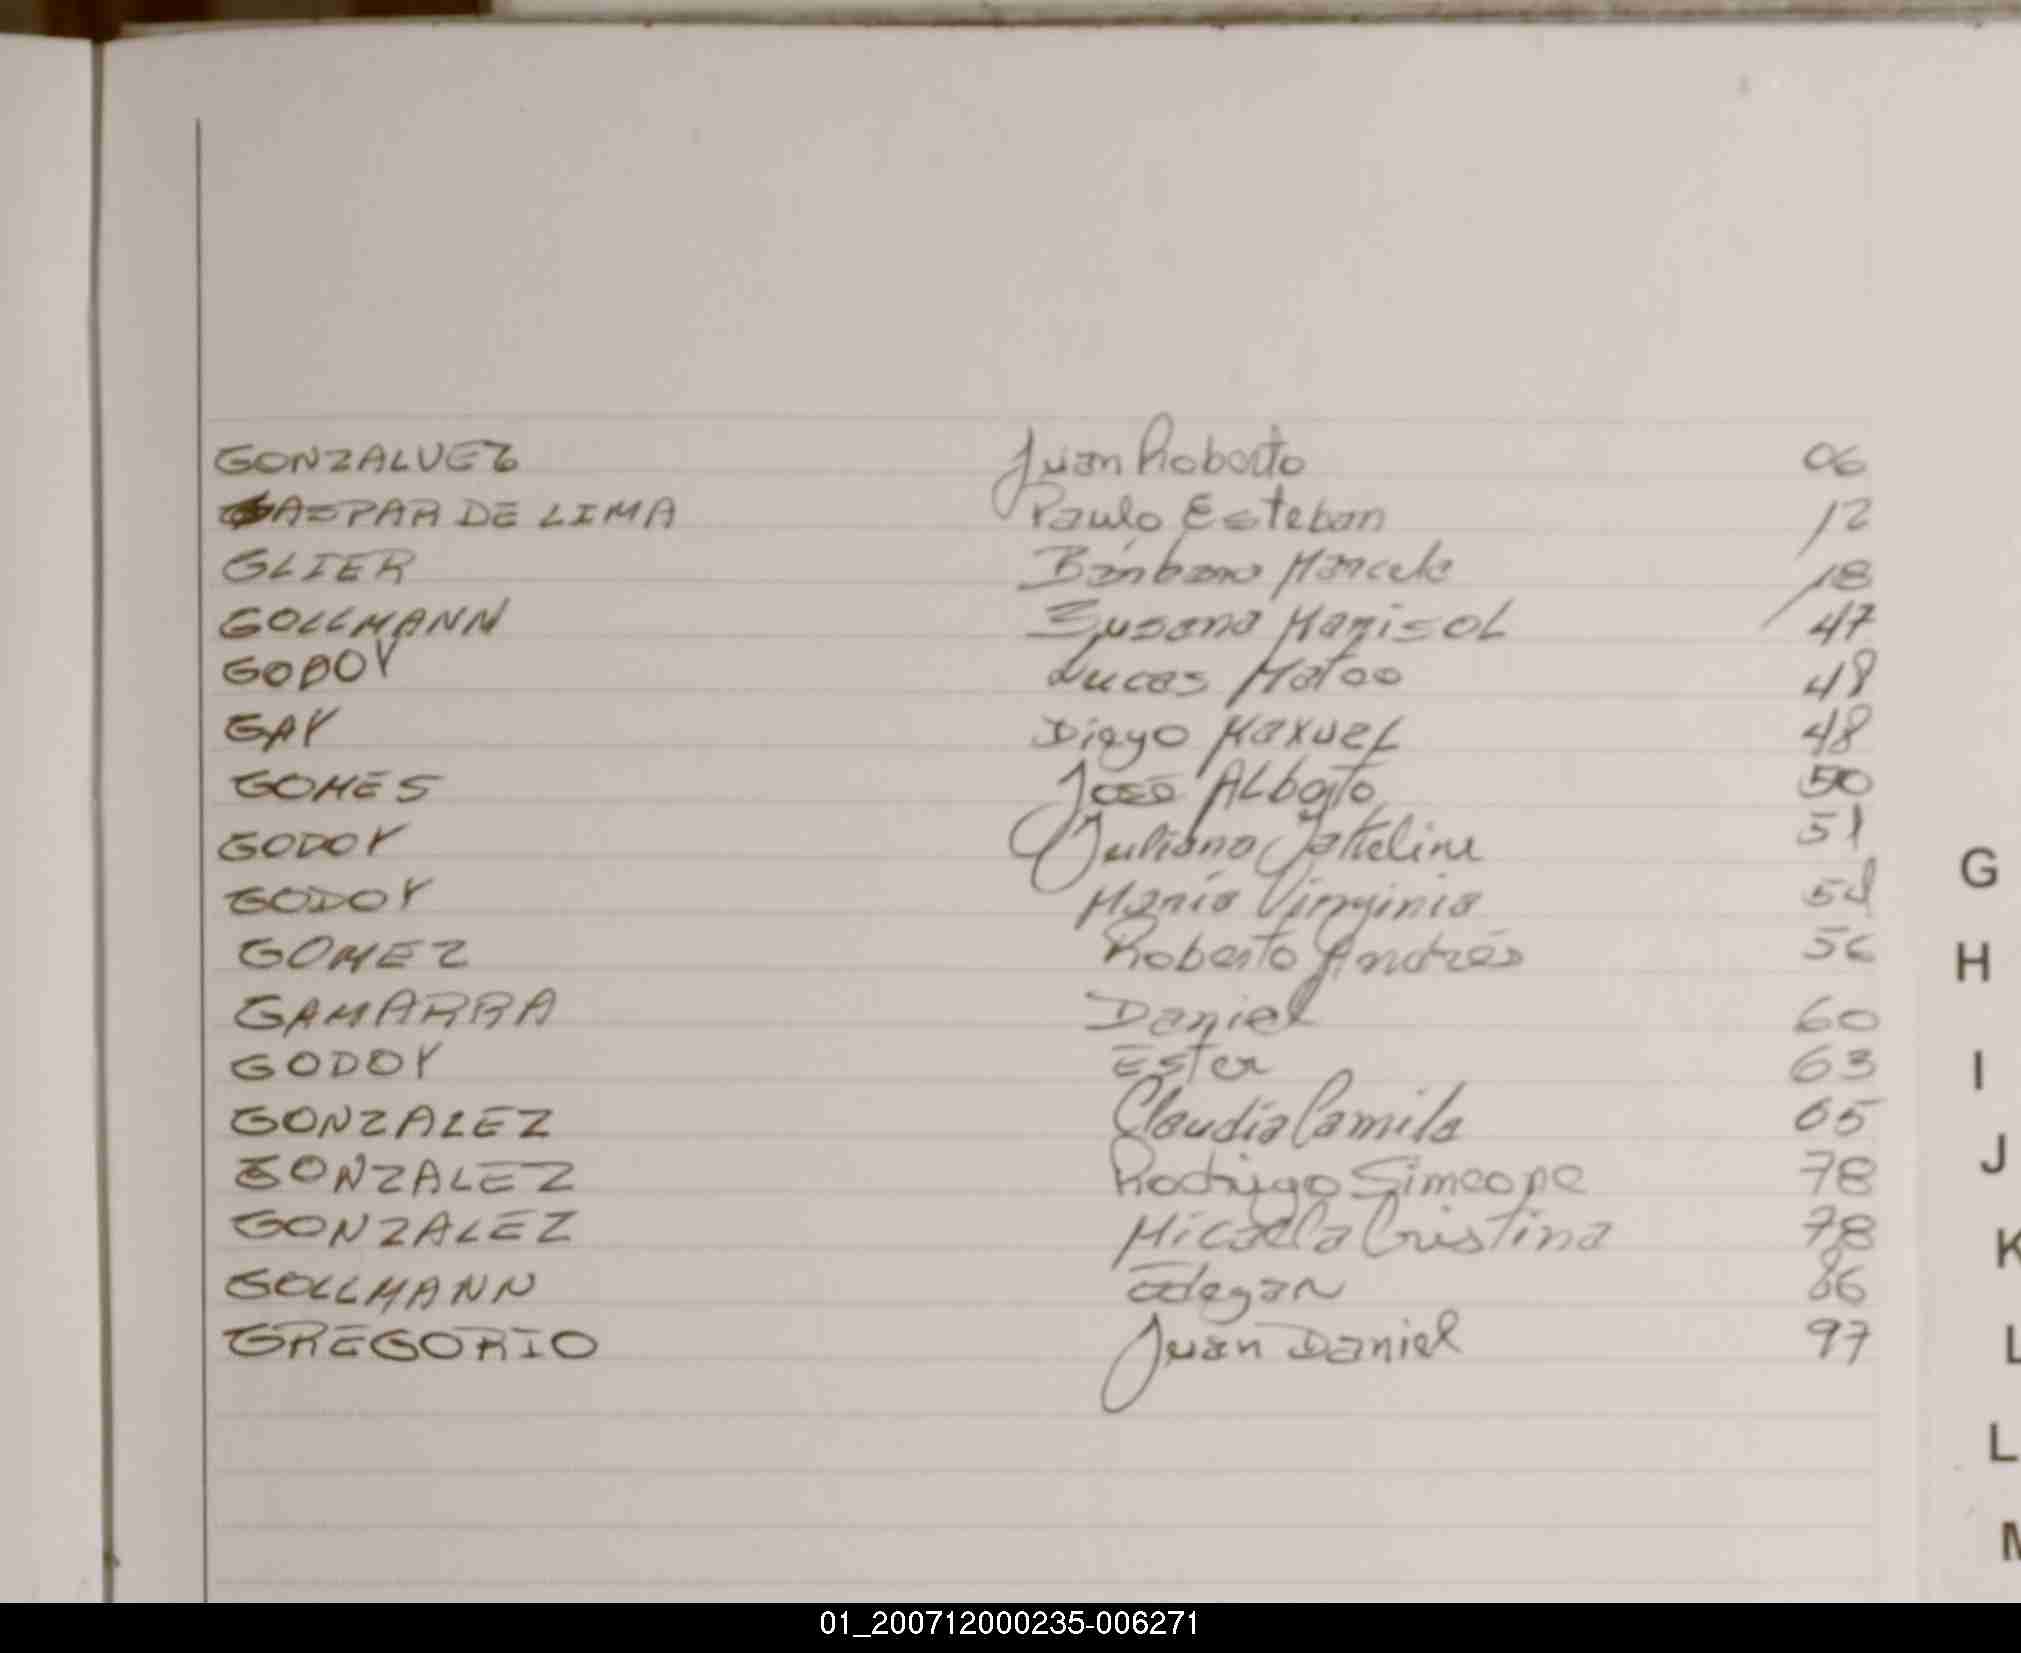 GONZALVEZ Juan Roberto 06
GASPAR DE LIMA Paulo Esteban 12
GLIER Bárbara Marcela 18
GOLLMANN Susana Marisol 47
GODOY Lucas Mateo 48
GAY Diego Maxuel 48
GOMES José Alberto 50
GODOY Juliana Jakeline 51
GODOY María Virginia 51
GOMEZ Roberto Andrés 56
GAMARRA Daniel 60
GODOY Ester 63
GONZALEZ Claudia Camila 65
GONZALEZ Rodrigo Simeone 78
GONZALEZ Micaela Cristina 78
GOLLMANN Edegar 86
GREGORIO Juan Daniel 97
G
H
I
J
K
L
L
M
01_200712000235-006271